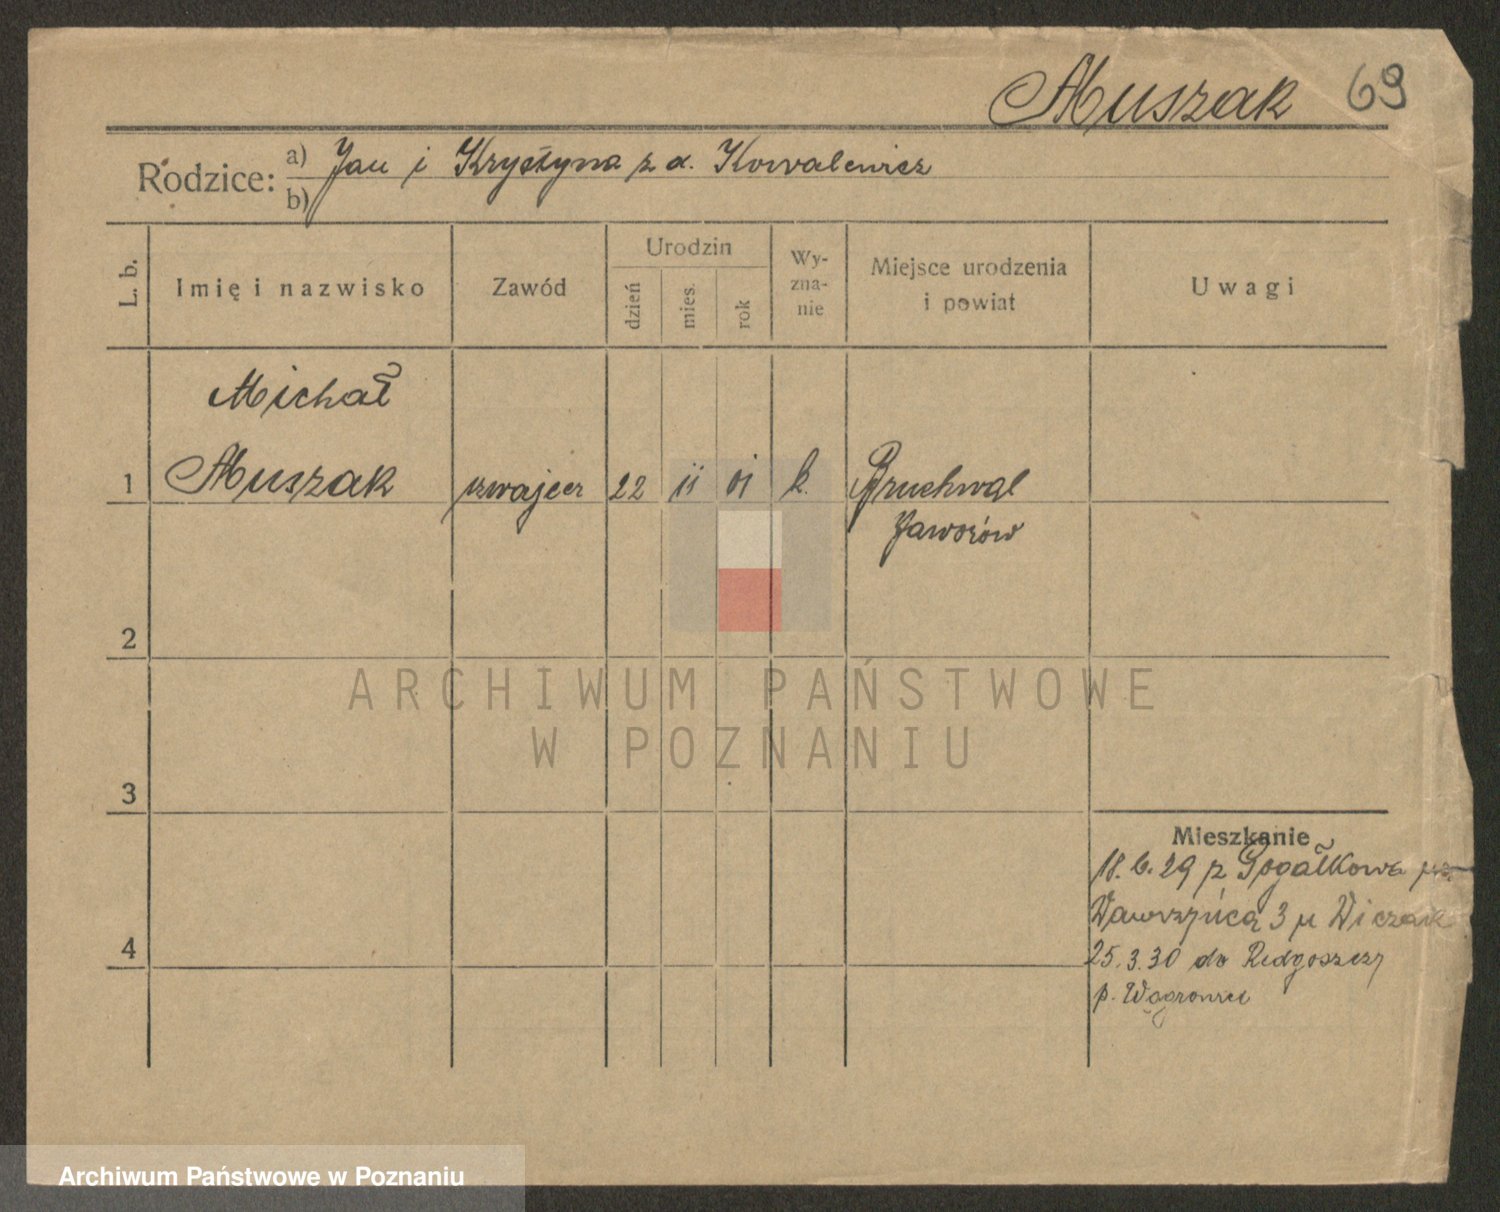 Muszak 69
Rodzice: a) Jan i Krystyna z d. Kowalewicz
b)
L. b. Imię i nazwisko Zawód Urodzin dzień mies. rok Wy-zna-nie Miejsce urodzenia i powiat Uwagi
Michał
1 Muszak szwajcer 22 ii 01 k. Bruchwal
Jaworów
2
ARCHIWUM PAŃSTWOWE
W POZNANIU
3
Mieszkanie
18.6.29 z Gogółkowa
Wawrzyńca 3 u Wiczak
4
25.3.30 do Redgoszczy
p. Wągrowiec
Archiwum Państwowe w Poznaniu